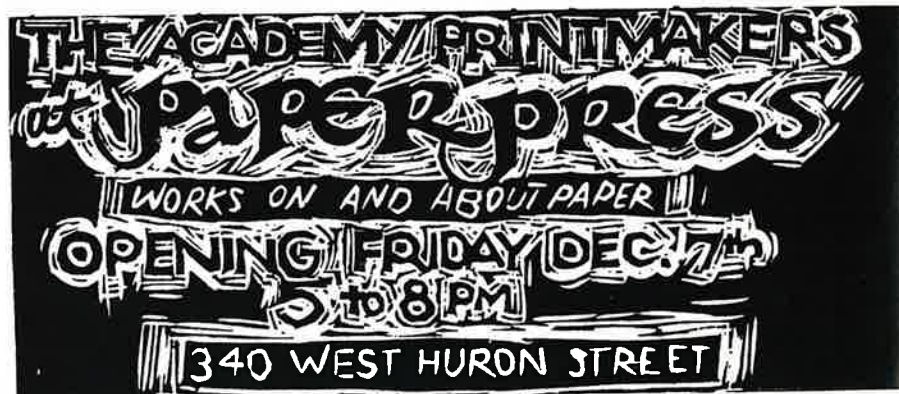 THE ACADEMY PRINTMAKERS
at PAPER PRESS
WORKS ON AND ABOUT PAPER
OPENING FRIDAY DEC. 7th
5 to 8 PM
340 WEST HURON STREET